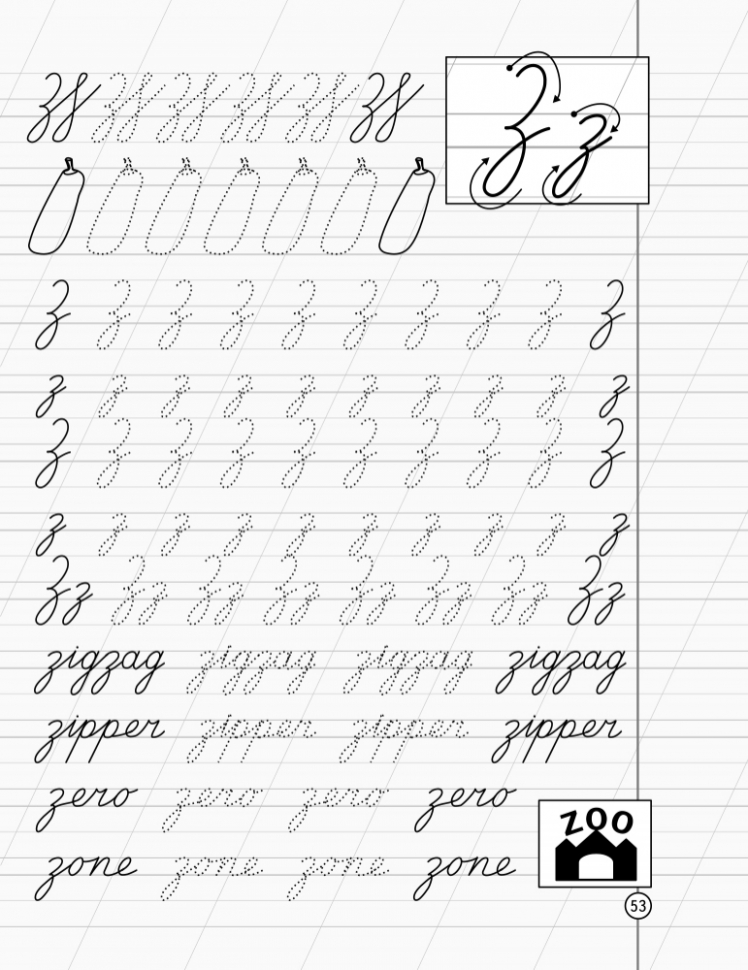 Z z
Z Z Z Z Z Z Z Z Z Z
z z z z z z z z z z
Z Z Z Z Z Z Z Z Z Z
z z z z z z z z z z
Zz Zz Zz Zz Zz Zz Zz Zz
zigzag zigzag zigzag zigzag
zipper zipper zipper zipper
zero zero zero zero
zone zone zone zone
ZOO
53